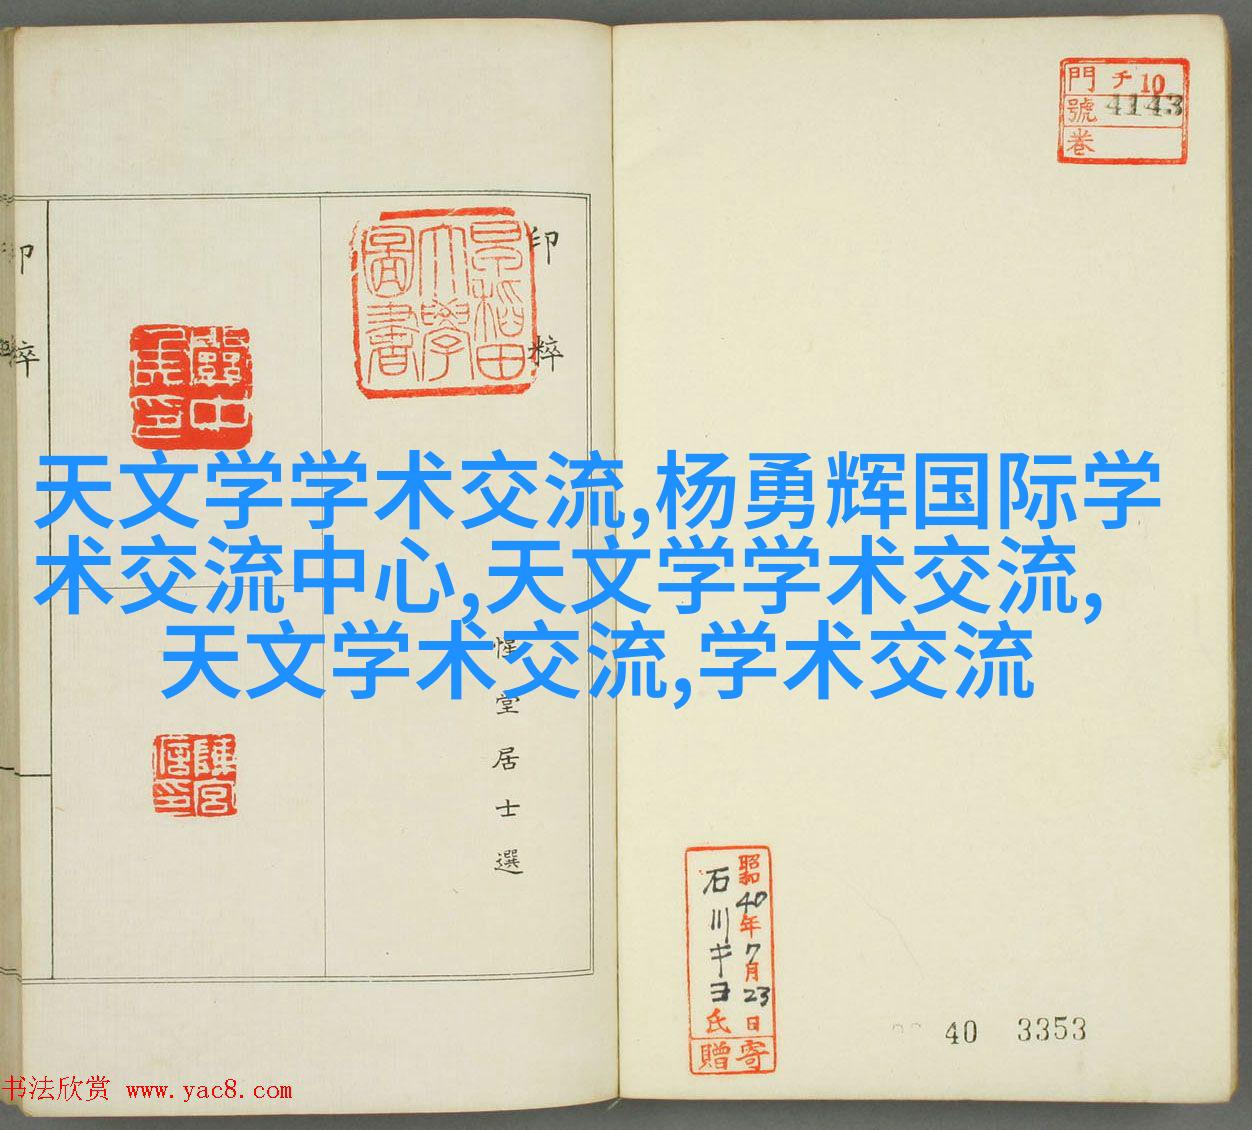 門 チ 10
號 4143
卷
印粹
早稻田
大學
圖書
印粹
天文学学术交流,杨勇辉国际学
术交流中心,天文学学术交流,
天文学术交流,学术交流
惺堂居士選
陳宮
信印
昭和40年7月23日
石川キヨ氏
寄贈
40 3353
书法欣赏 www.yac8.com